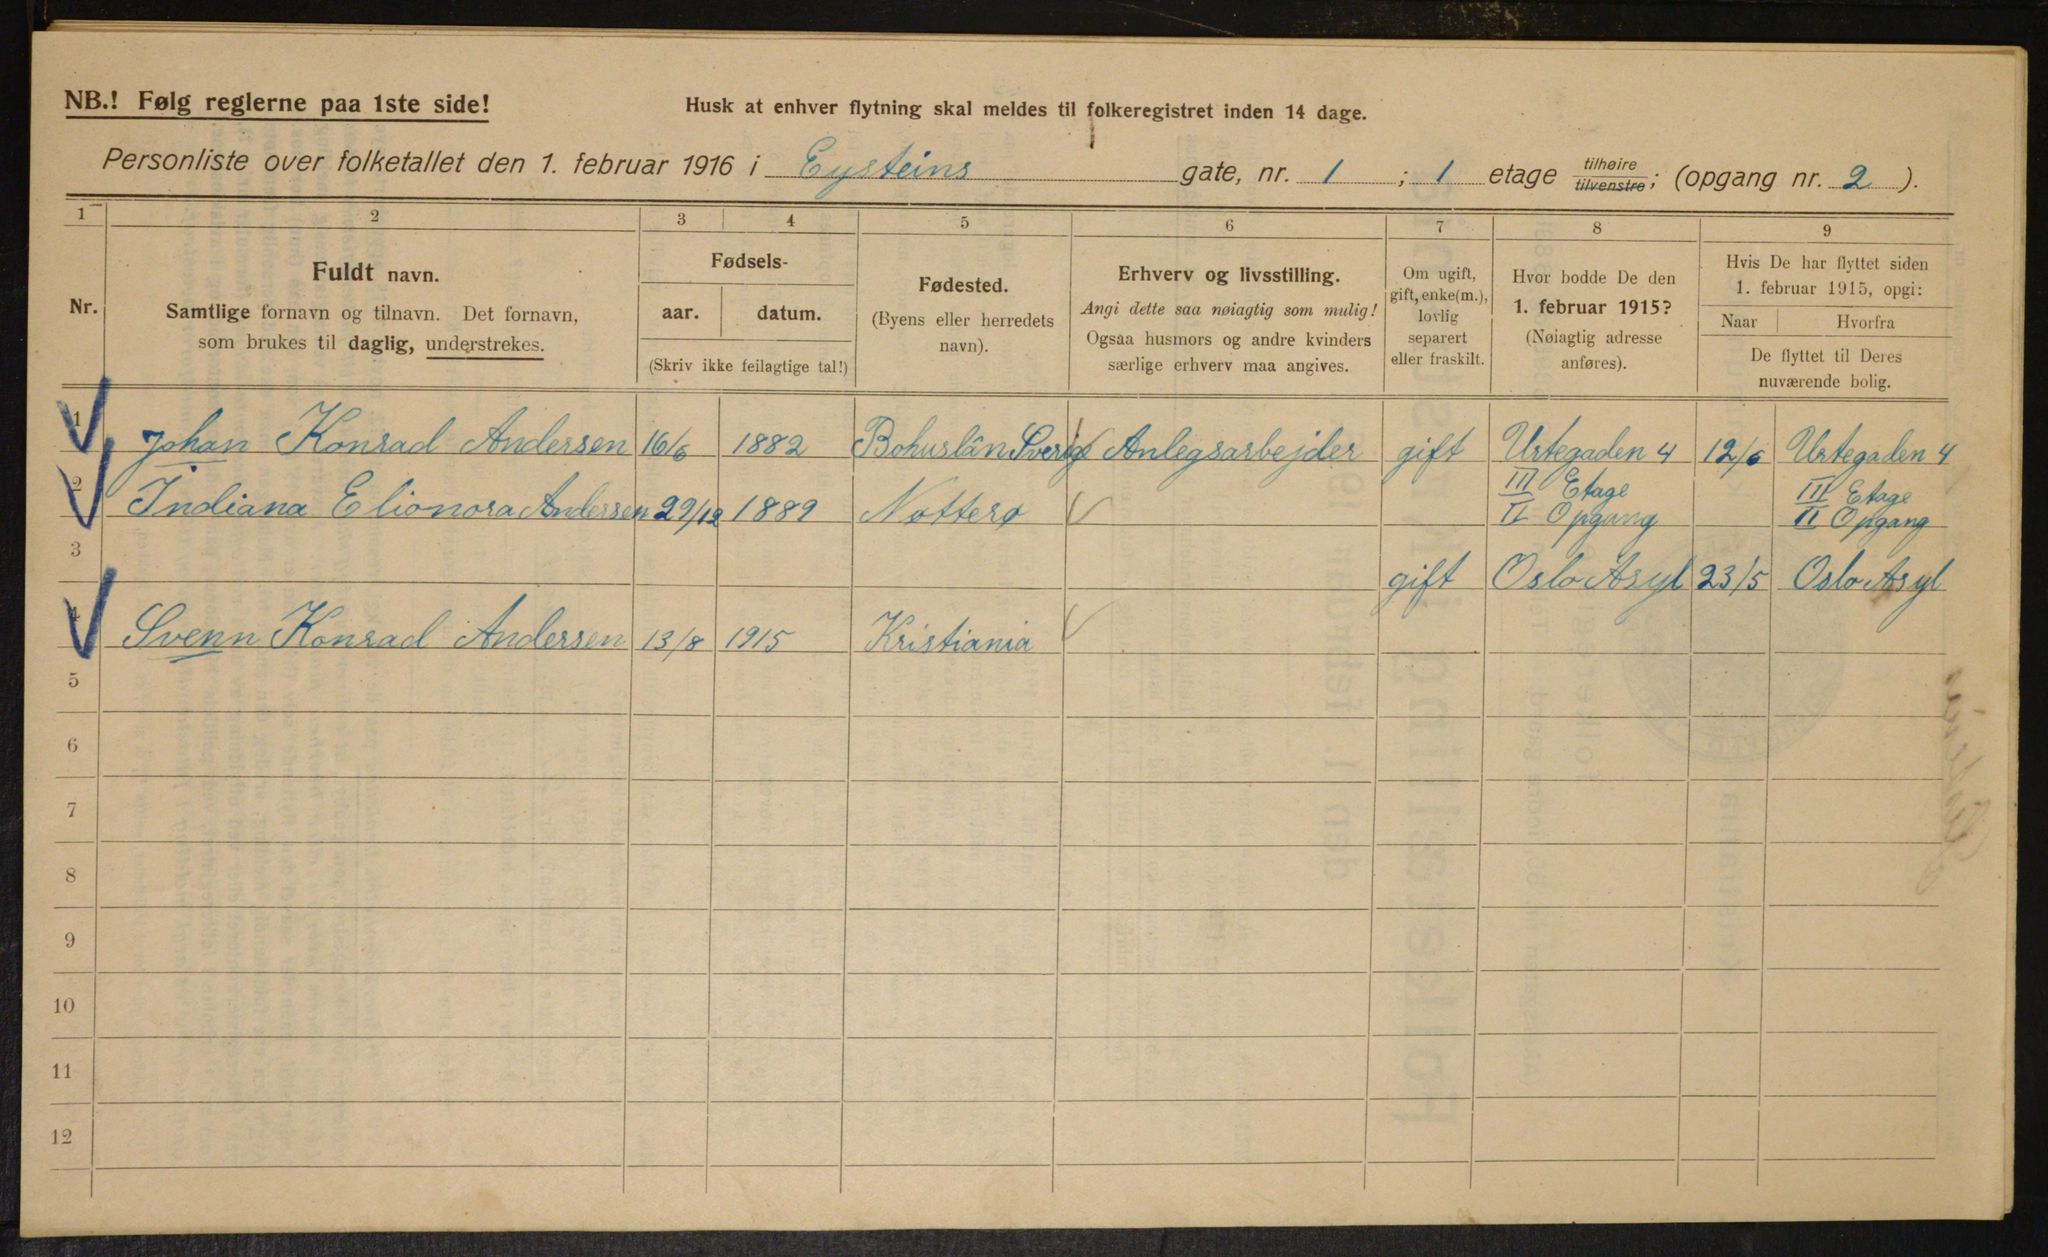 NB.! Følg reglerne paa 1ste side!
Husk at enhver flytning skal meldes til folkeregistret inden 14 dage.
Personliste over folketallet den 1. februar 1916 i Eysteins gate, nr. 1 ; 1 etage tilhøire tilvenstre; (opgang nr. 2 ).
1 2 3 4 5 6 7 8 9
Nr.
Fuldt navn.
Samtlige fornavn og tilnavn. Det fornavn,
som brukes til daglig, understrekes.
Fødsels-
aar. datum.
(Skriv ikke feilagtige tal!)
Fødested.
(Byens eller herredets
navn).
Erhverv og livsstilling.
Angi dette saa nøiagtig som mulig!
Ogsaa husmors og andre kvinders
særlige erhverv maa angives.
Om ugift,
gift, enke(m.),
lovlig
separert
eller fraskilt.
Hvor bodde De den
1. februar 1915?
(Nøiagtig adresse
anføres).
Hvis De har flyttet siden
1. februar 1915, opgi:
Naar Hvorfra
De flyttet til Deres
nuværende bolig.
1 Johan Konrad Andersen 16/6 1882 Bohuslän Sverige Anlegsarbejder gift Urtegaden 4 12/6 Urtegaden 4
III Etage III Etage
2 Indiana Elionora Andersen 29/12 1889 Nøtterø II Opgang II Opgang
3 gift Oslo Asyl 23/5 Oslo Asyl
4 Svenn Konrad Andersen 13/8 1915 Kristiania
5
6
7
8
9
10
11
12